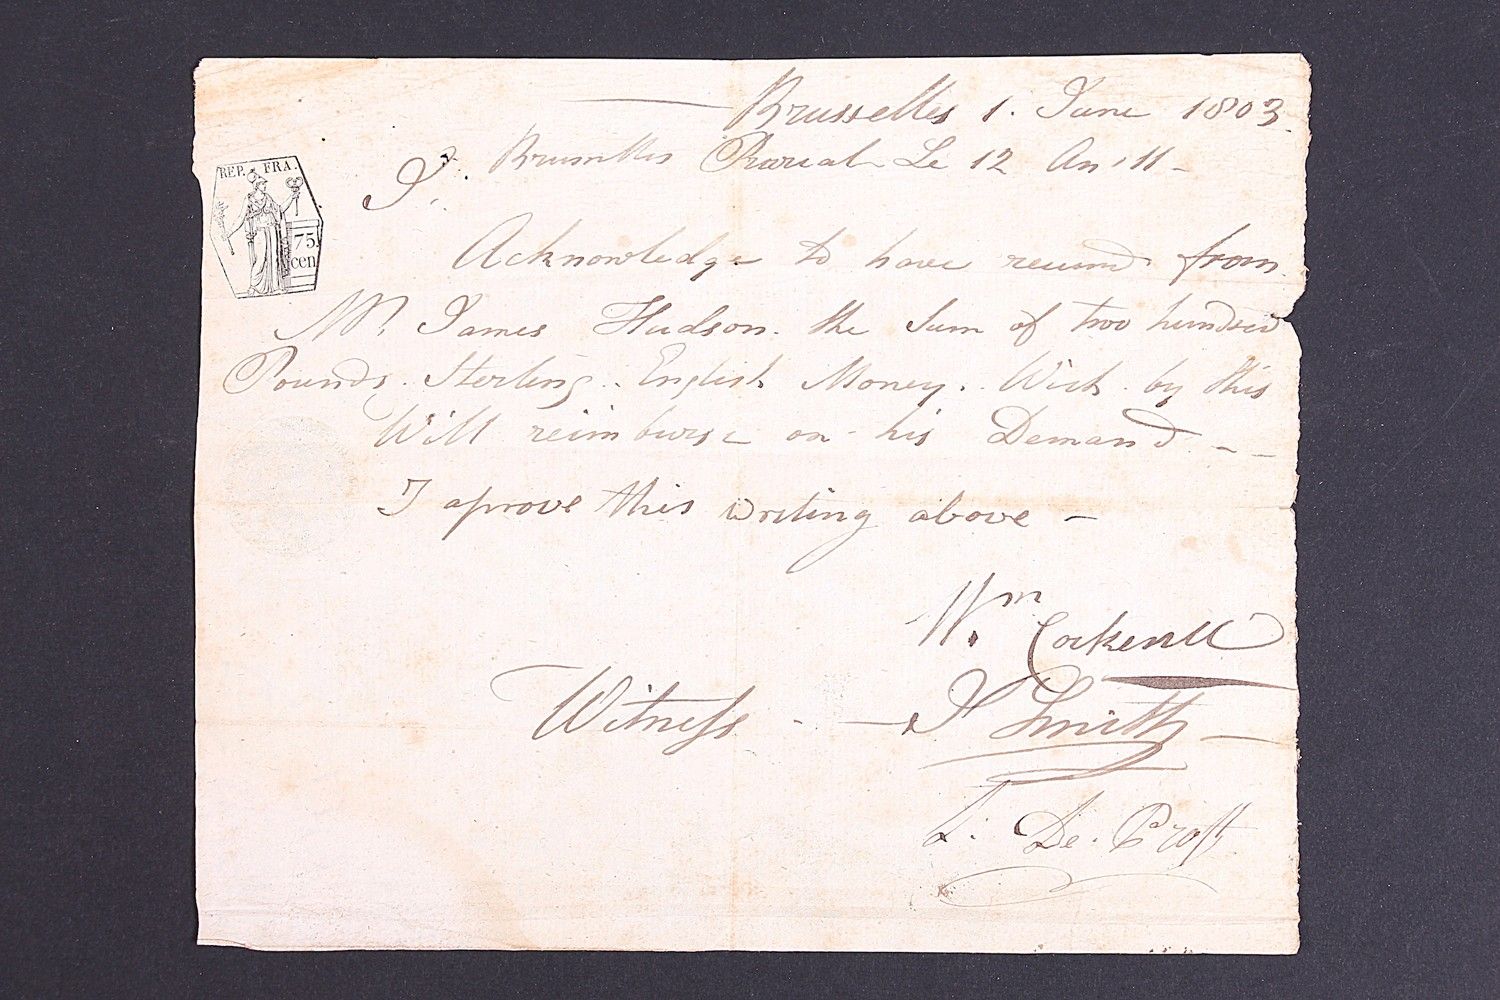 Brusselles 1. June 1803.
Brusselles Prarial Le 12 An 11 -
REP. FRA.
75
cen
I.
Acknowledge to have receind from
Mr. James Hudson. the Sum of two hundred
Pounds. Sterling. English Money. Wich by this
Will reimburse on his Demand - -
I aprove this writing above -
Wm Cockerill
Witness - - J Smith -
De. Proft